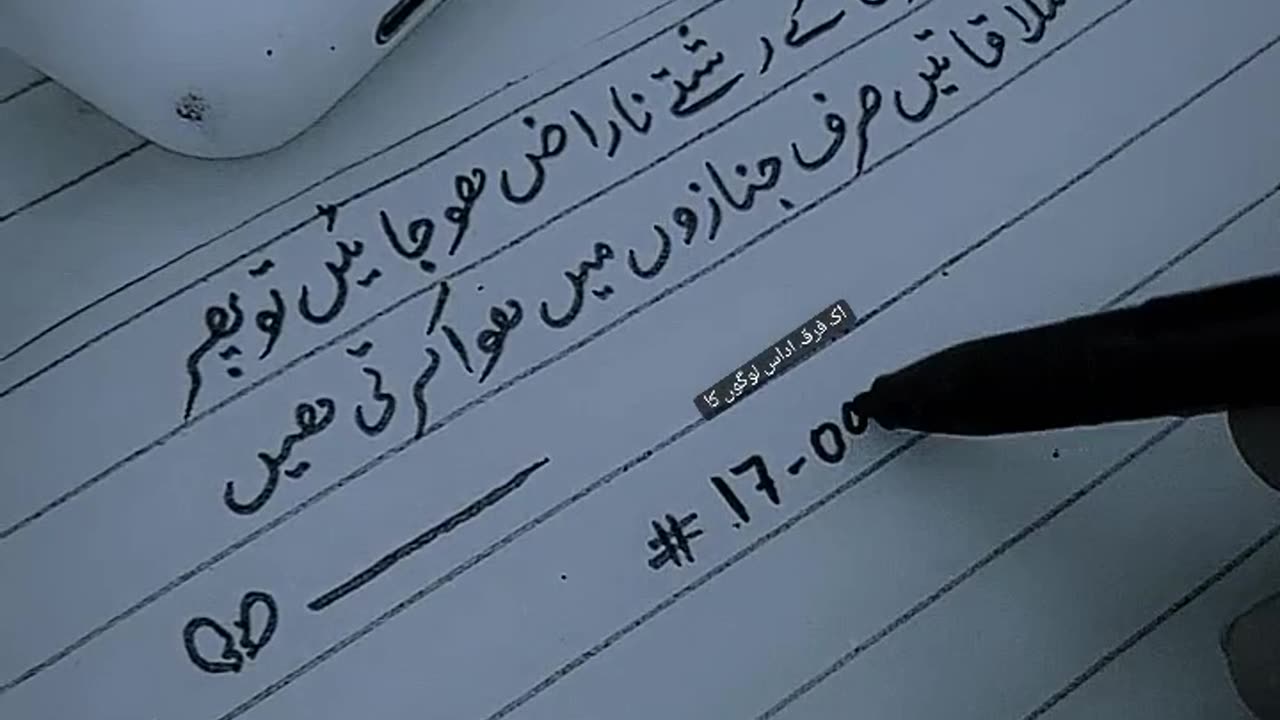 کے رشتے ناراض ھو جائیں تو پھر
ملاقاتیں صرف جنازوں میں ھوا کرتی ھیں
اک فرقہ اداس لوگوں کا
# 17-00